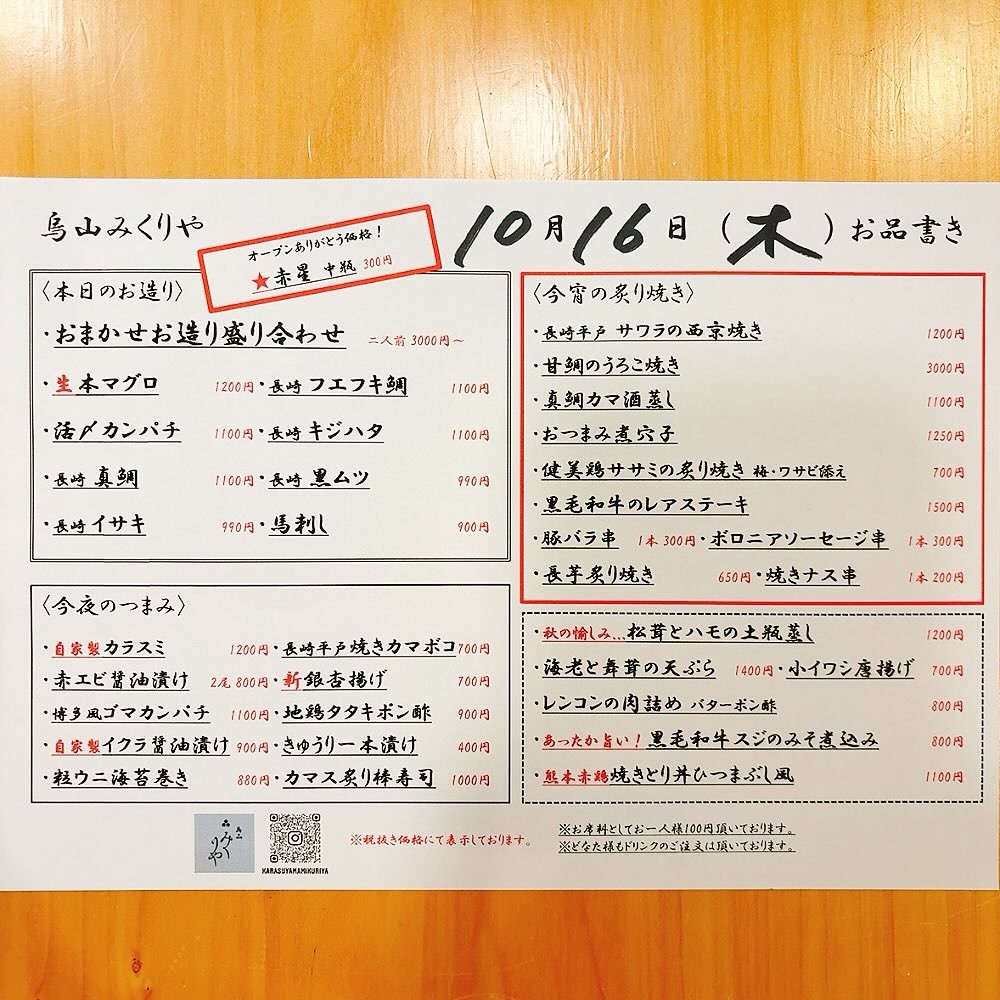 烏山みくりや
オープンありがとう価格!
★赤星 中瓶 300円
10月16日(木)お品書き
〈本日のお造り〉
・おまかせお造り盛り合わせ 二人前 3000円〜
・生本マグロ 1200円・長崎 フエフキ鯛 1100円
・活〆カンパチ 1100円・長崎 キジハタ 1100円
・長崎 真鯛 1100円・長崎 黒ムツ 990円
・長崎 イサキ 990円・馬刺し 900円
〈今夜のつまみ〉
・自家製カラスミ 1200円・長崎平戸焼きカマボコ 700円
・赤エビ醤油漬け 2尾 800円・新銀杏揚げ 700円
・博多風ゴマカンパチ 1100円・地鶏タタキポン酢 900円
・自家製イクラ醤油漬け 900円・きゅうり一本漬け 400円
・粒ウニ海苔巻き 880円・カマス炙り棒寿司 1000円
〈今宵の炙り焼き〉
・長崎平戸 サワラの西京焼き 1200円
・甘鯛のうろこ焼き 3000円
・真鯛カマ酒蒸し 1100円
・おつまみ煮穴子 1250円
・健美鶏ササミの炙り焼き 梅・ワサビ添え 700円
・黒毛和牛のレアステーキ 1500円
・豚バラ串 1本 300円・ボロニアソーセージ串 1本 300円
・長芋炙り焼き 650円・焼きナス串 1本 200円
・秋の愉しみ...松茸とハモの土瓶蒸し 1200円
・海老と舞茸の天ぷら 1400円・小イワシ唐揚げ 700円
・レンコンの肉詰め バターポン酢 800円
・あったか旨い!黒毛和牛スジのみそ煮込み 800円
・熊本赤鶏焼きとり丼ひつまぶし風 1100円
烏山
みくりや
KARASUYAMAMIKURIYA
※税抜き価格にて表示しております。
※お席料としてお一人様100円頂いております。
※どなた様もドリンクのご注文は頂いております。